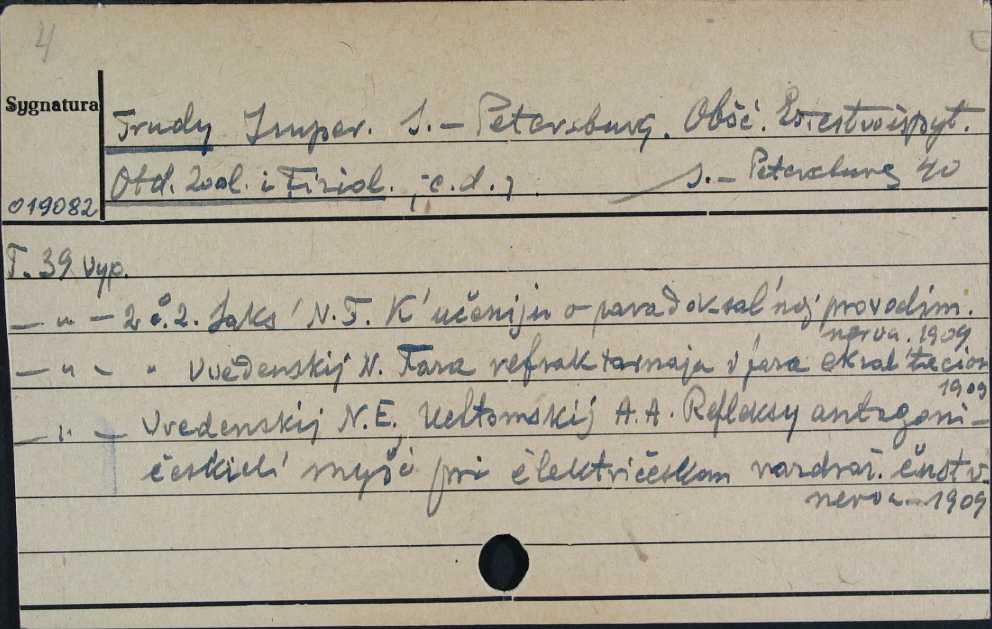 4
Sygnatura
Trudy Imper. S.-Petersburg. Obšč. Estestvoispyt.
Otd. Zool. i Fiziol. ; c.d.; S.-Petersburg 40
019082
T. 39 vyp.
— " — 2 č. 2. Saks' N.F. K' učeniju o paradoksal'noj provodim.
nerva. 1909
— " — " Vvedenskij N. Faza refraktornaja i faza ekzal'tacion
1909
— " — Vvedenskij N.E., Uchtomskij A.A. Refleksy antagoni-
českich' myšc pri èlektričeskom razdraž. čuvstv.
nerva — 1909